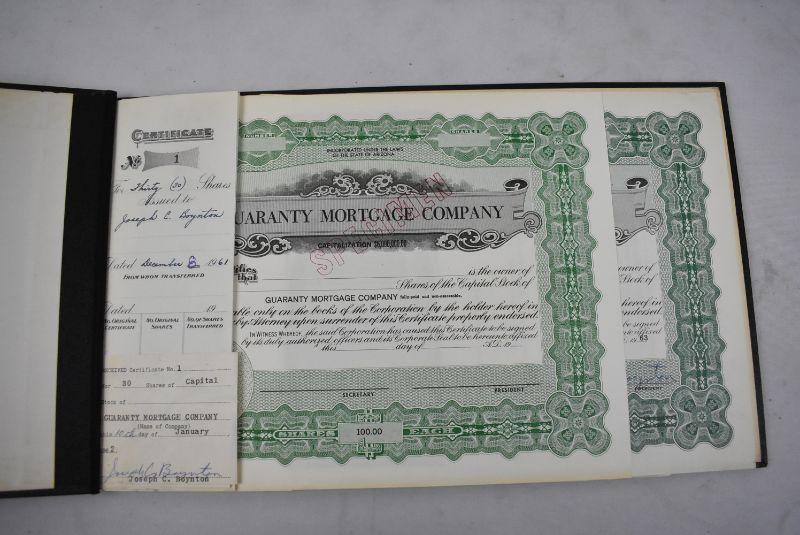 CERTIFICATE
No 1
For Thirty (30) Shares
Issued to
Joseph C. Boynton
Dated December 8 1961
FROM WHOM TRANSFERRED
Dated 19
NO. ORIGINAL CERTIFICATE
NO. ORIGINAL SHARES
NO. OF SHARES TRANSFERRED
RECEIVED Certificate No. 1
For 30 Shares of Capital
Stock of
GUARANTY MORTGAGE COMPANY
(Name of Company)
this 10th day of January
Joseph C Boynton
Joseph C. Boynton
NUMBER
SHARES
INCORPORATED UNDER THE LAWS
OF THE STATE OF ARIZONA
SPECIMEN
GUARANTY MORTGAGE COMPANY
CAPITALIZATION
that
is the owner of
Shares of the Capital Stock of
GUARANTY MORTGAGE COMPANY fully paid and non-assessable.
able only on the books of the Corporation by the holder hereof in
by Attorney upon surrender of this Certificate properly endorsed.
IN WITNESS WHEREOF, the said Corporation has caused this Certificate to be signed
by its duly authorized officers and its Corporate Seal to be hereunto affixed
this day of A.D. 19
SECRETARY
PRESIDENT
SHARES 100.00 EACH
SHARES
NY
owner of
Stock of
hereof in
endorsed.
be signed
affixed
19 63
PRESIDENT